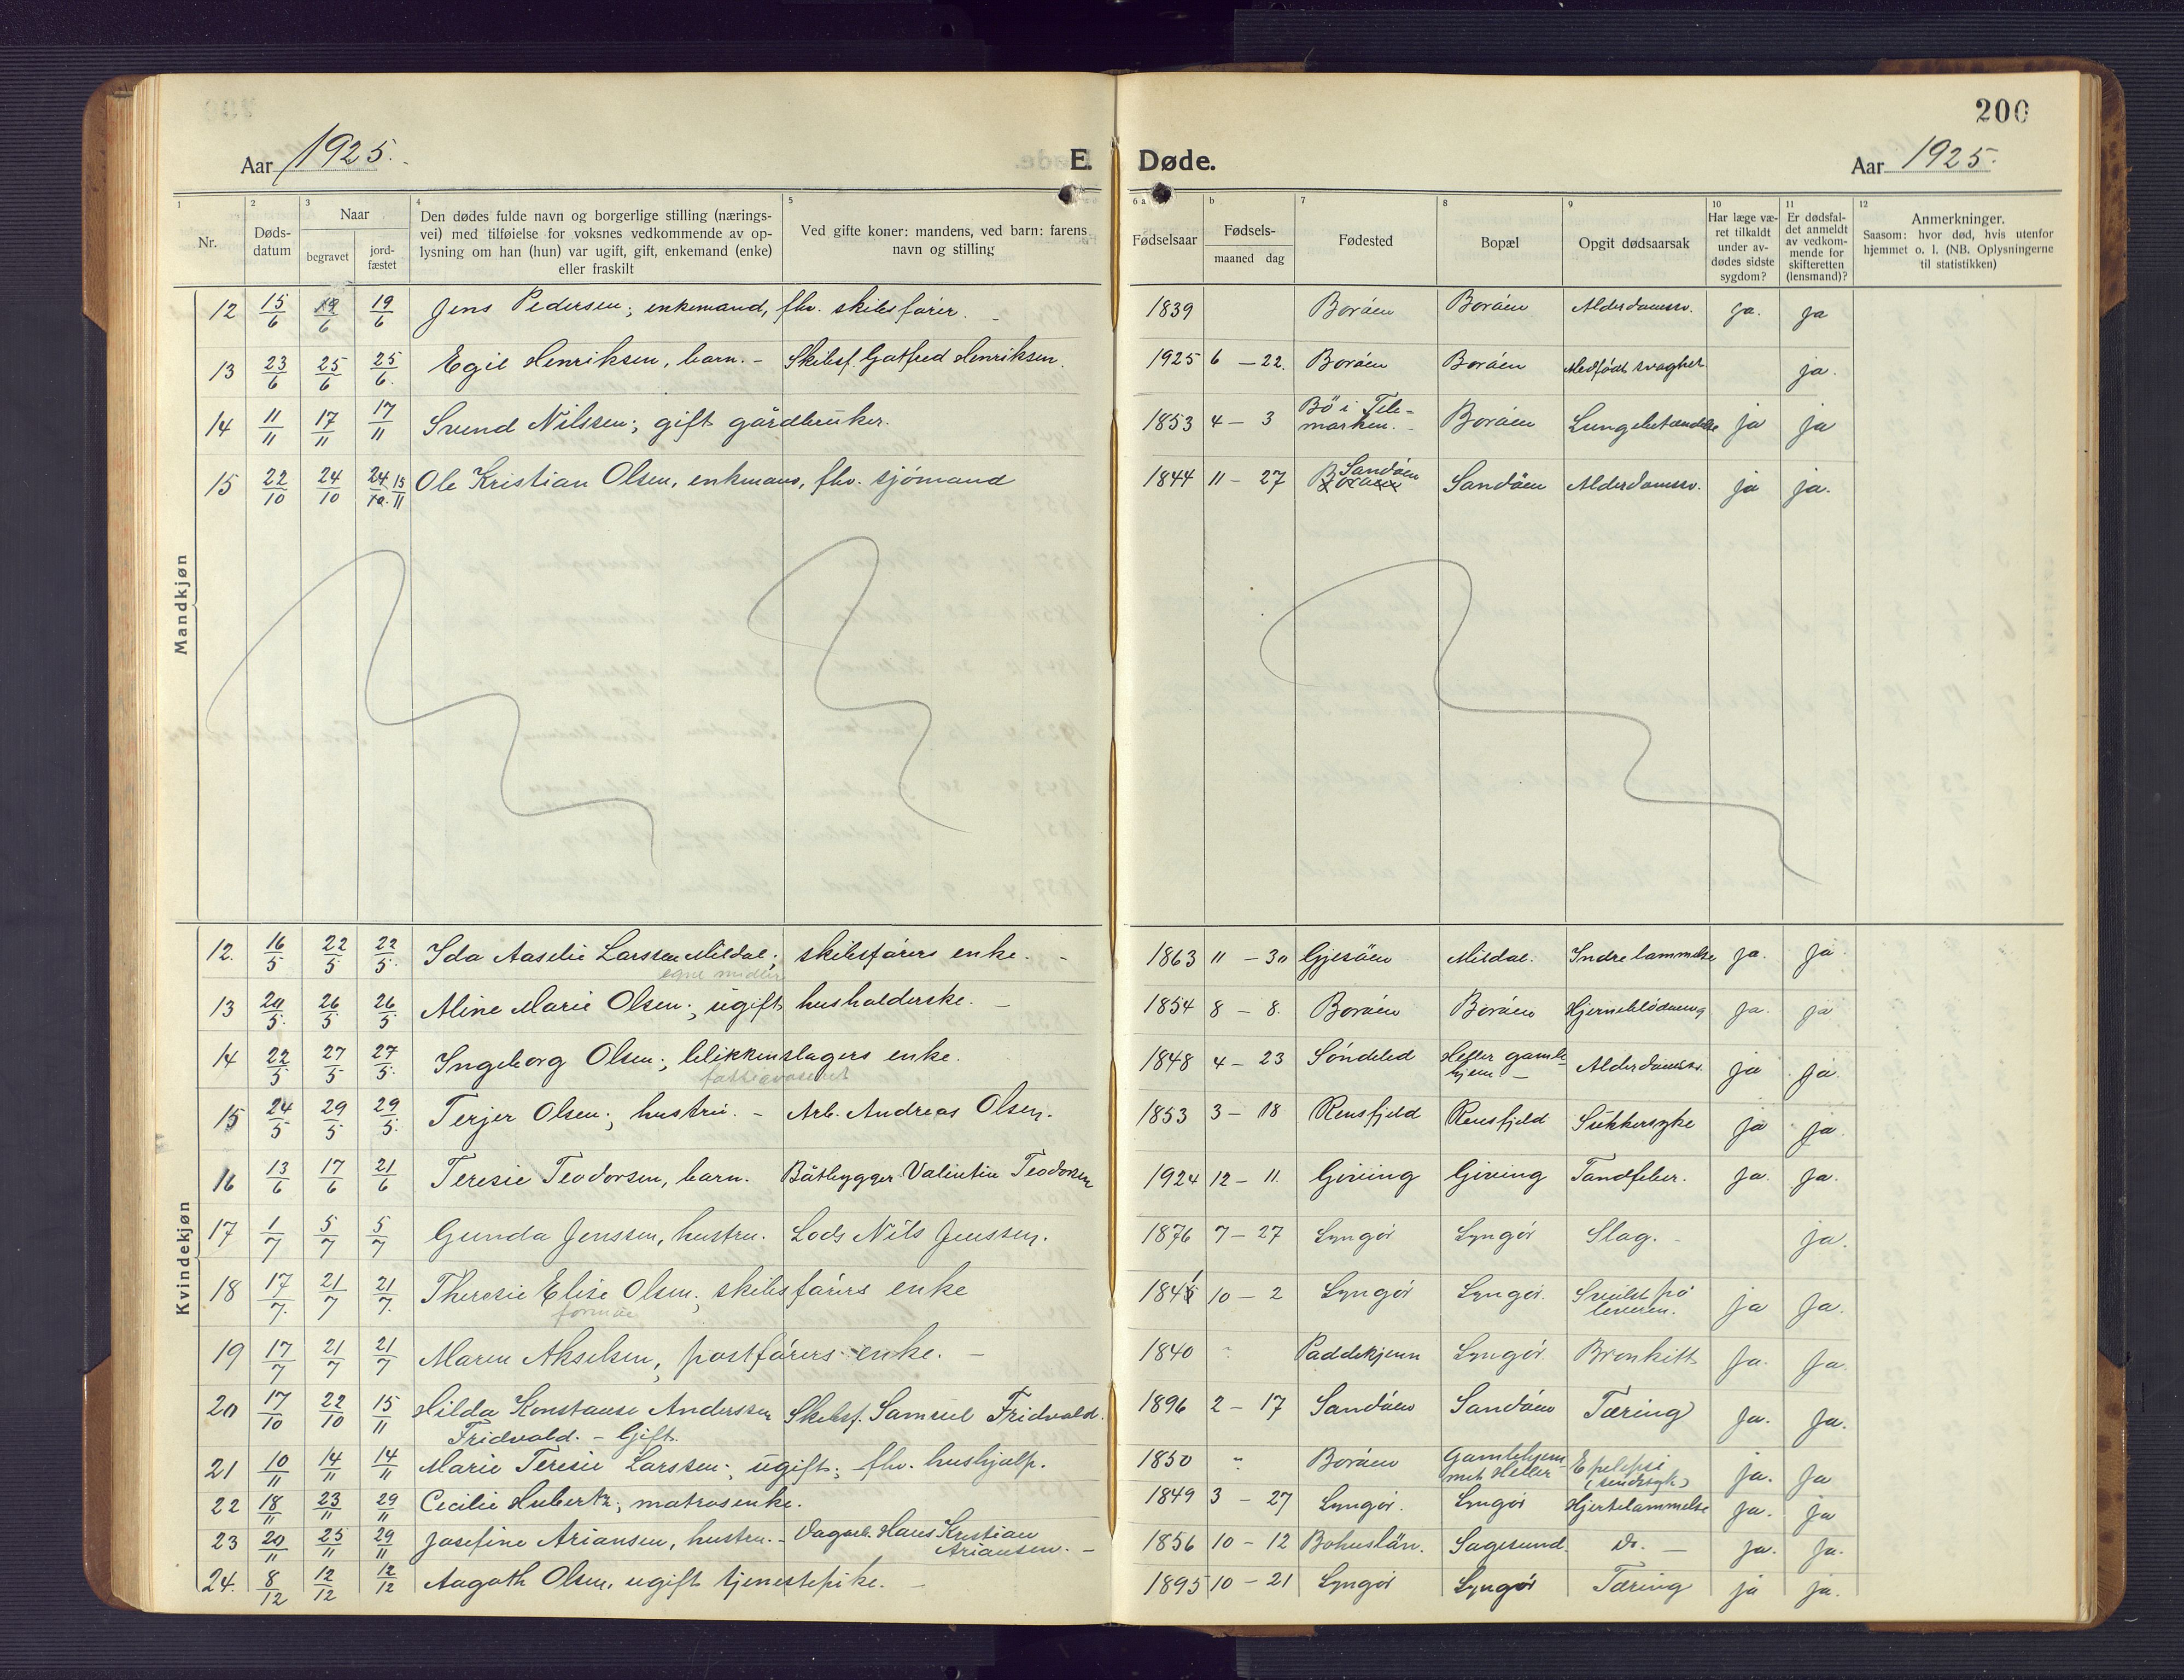 200
Aar 1925.
E. Døde.
Aar 1925.
1 Nr.
2 Døds-datum
3 Naar
begravet
jord-fæstet
4 Den dødes fulde navn og borgerlige stilling (nærings-
vei) med tilføielse for voksnes vedkommende av op-
lysning om han (hun) var ugift, gift, enkemand (enke)
eller fraskilt
5 Ved gifte koner: mandens, ved barn: farens
navn og stilling
6 a Fødselsaar
b Fødsels-
maaned dag
7 Fødested
8 Bopæl
9 Opgit dødsaarsak
10 Har læge væ-
ret tilkaldt
under av-
dødes sidste
sygdom?
11 Er dødsfal-
det anmeldt
av vedkom-
mende for
skifteretten
(lensmand)?
12 Anmerkninger.
Saasom: hvor død, hvis utenfor
hjemmet o. l. (NB. Oplysningerne
til statistikken)
Mandkjøn
12 15/6 19/6 19/6 Jens Pedersen; enkemand, fhv. skibsfører. 1839 Borøen Borøen Alderdomssv. ja. ja
13 23/6 25/6 25/6. Egil Henriksen, barn. - Skibsf. Gotfred Henriksen. 1925 6 - 22. Borøen Borøen Medfødt svaghet ja.
14 11/11 17/11 17/11 Svend Nilssen; gift gårdbruker. 1853 4 - 3 Bö i Tele-
marken. Borøen Lungebetændelse ja ja
15 22/10 24/10 24/10. 15/11 Ole Kristian Olsen, enkemand, fhv. sjömand 1844 11 - 27 Borøen Sandøen Sandøen Alderdomssv. ja ja.
Kvindekjøn
12. 16/5 22/5 22/5. Ida Aaselie Larssen Mildal; skibsførers enke. - 1863 11 - 30 Gjesöen Mildal. Indre lammelse ja. ja
egne midler
13 20/5. 26/5 26/5 Aline Marie Olsen; ugift husholderske. - 1854 8 - 8. Borøen Borøen Hjerneblödning ja. ja
14 22/5 27/5 27/5. Ingeborg Olsen; blikkenslagers enke. 1848 4 - 23 Söndeled Heller gamle-
hjem - Alderdomssv. ja ja
fattigvæsenet
15 24/5 29/5 29/5. Terjer Olsen; hustru. - Arb. Andreas Olsen. 1853 3 - 18 Rensfjeld Rensfjeld Sukkersyke ja ja.
16 13/6 17/6 21/6 Teresie Teodorsen, barn. Båtbygger Valentin Teodorsen 1924 12 - 11. Giving Giving Tandfeber. ja. ja.
17 1/7 5/7 5/7 Gunda Jenssen, hustru. Lods Nils Jenssen. 1876 7 - 27 Lyngör Lyngör Slag. - ja.
18 17/7. 21/7 21/7. Theresie Elise Olsen; skibsførers enke 1841 10 - 2 Lyngör Lyngör. Svulst på
leveren. ja ja.
formue
19 17/7 21/7 21/7 Maren Akselsen, postførers enke. - 1840 " Paddekjenn Lyngör. Bronkitt ja. ja.
20 17/10 22/10 15/11 Hilda Konstanse Anderssen
Fridvald. - Gift. Skibsf. Samuel Fridvald. 1896 2 - 17 Sandøen Sandøen Tæring ja. ja.
21 10/11 14/11 14/11 Marie Teresie Larssen; ugift; fhv. hushjælp. 1850 " Borøen Gamlehjem-
met Heller Epilepsi
(sindssyk) ja. ja
22 18/11 23/11 29/11 Cecilie Hubertz; matrosenke. 1849 3 - 27 Lyngör. Lyngör Hjertelammelse ja. ja
23 20/11 25/11 29/11 Josefine Ariansen, hustru. - Dagarb. Hans Kristian
Ariansen. - 1856 10 - 12 Bohuslän. Sagesund. Do. - ja. ja.
24. 8/12 12/12 12/12 Aagoth Olsen, ugift tjenestepike. - 1895 10 - 21 Lyngör Lyngör Tæring ja ja.